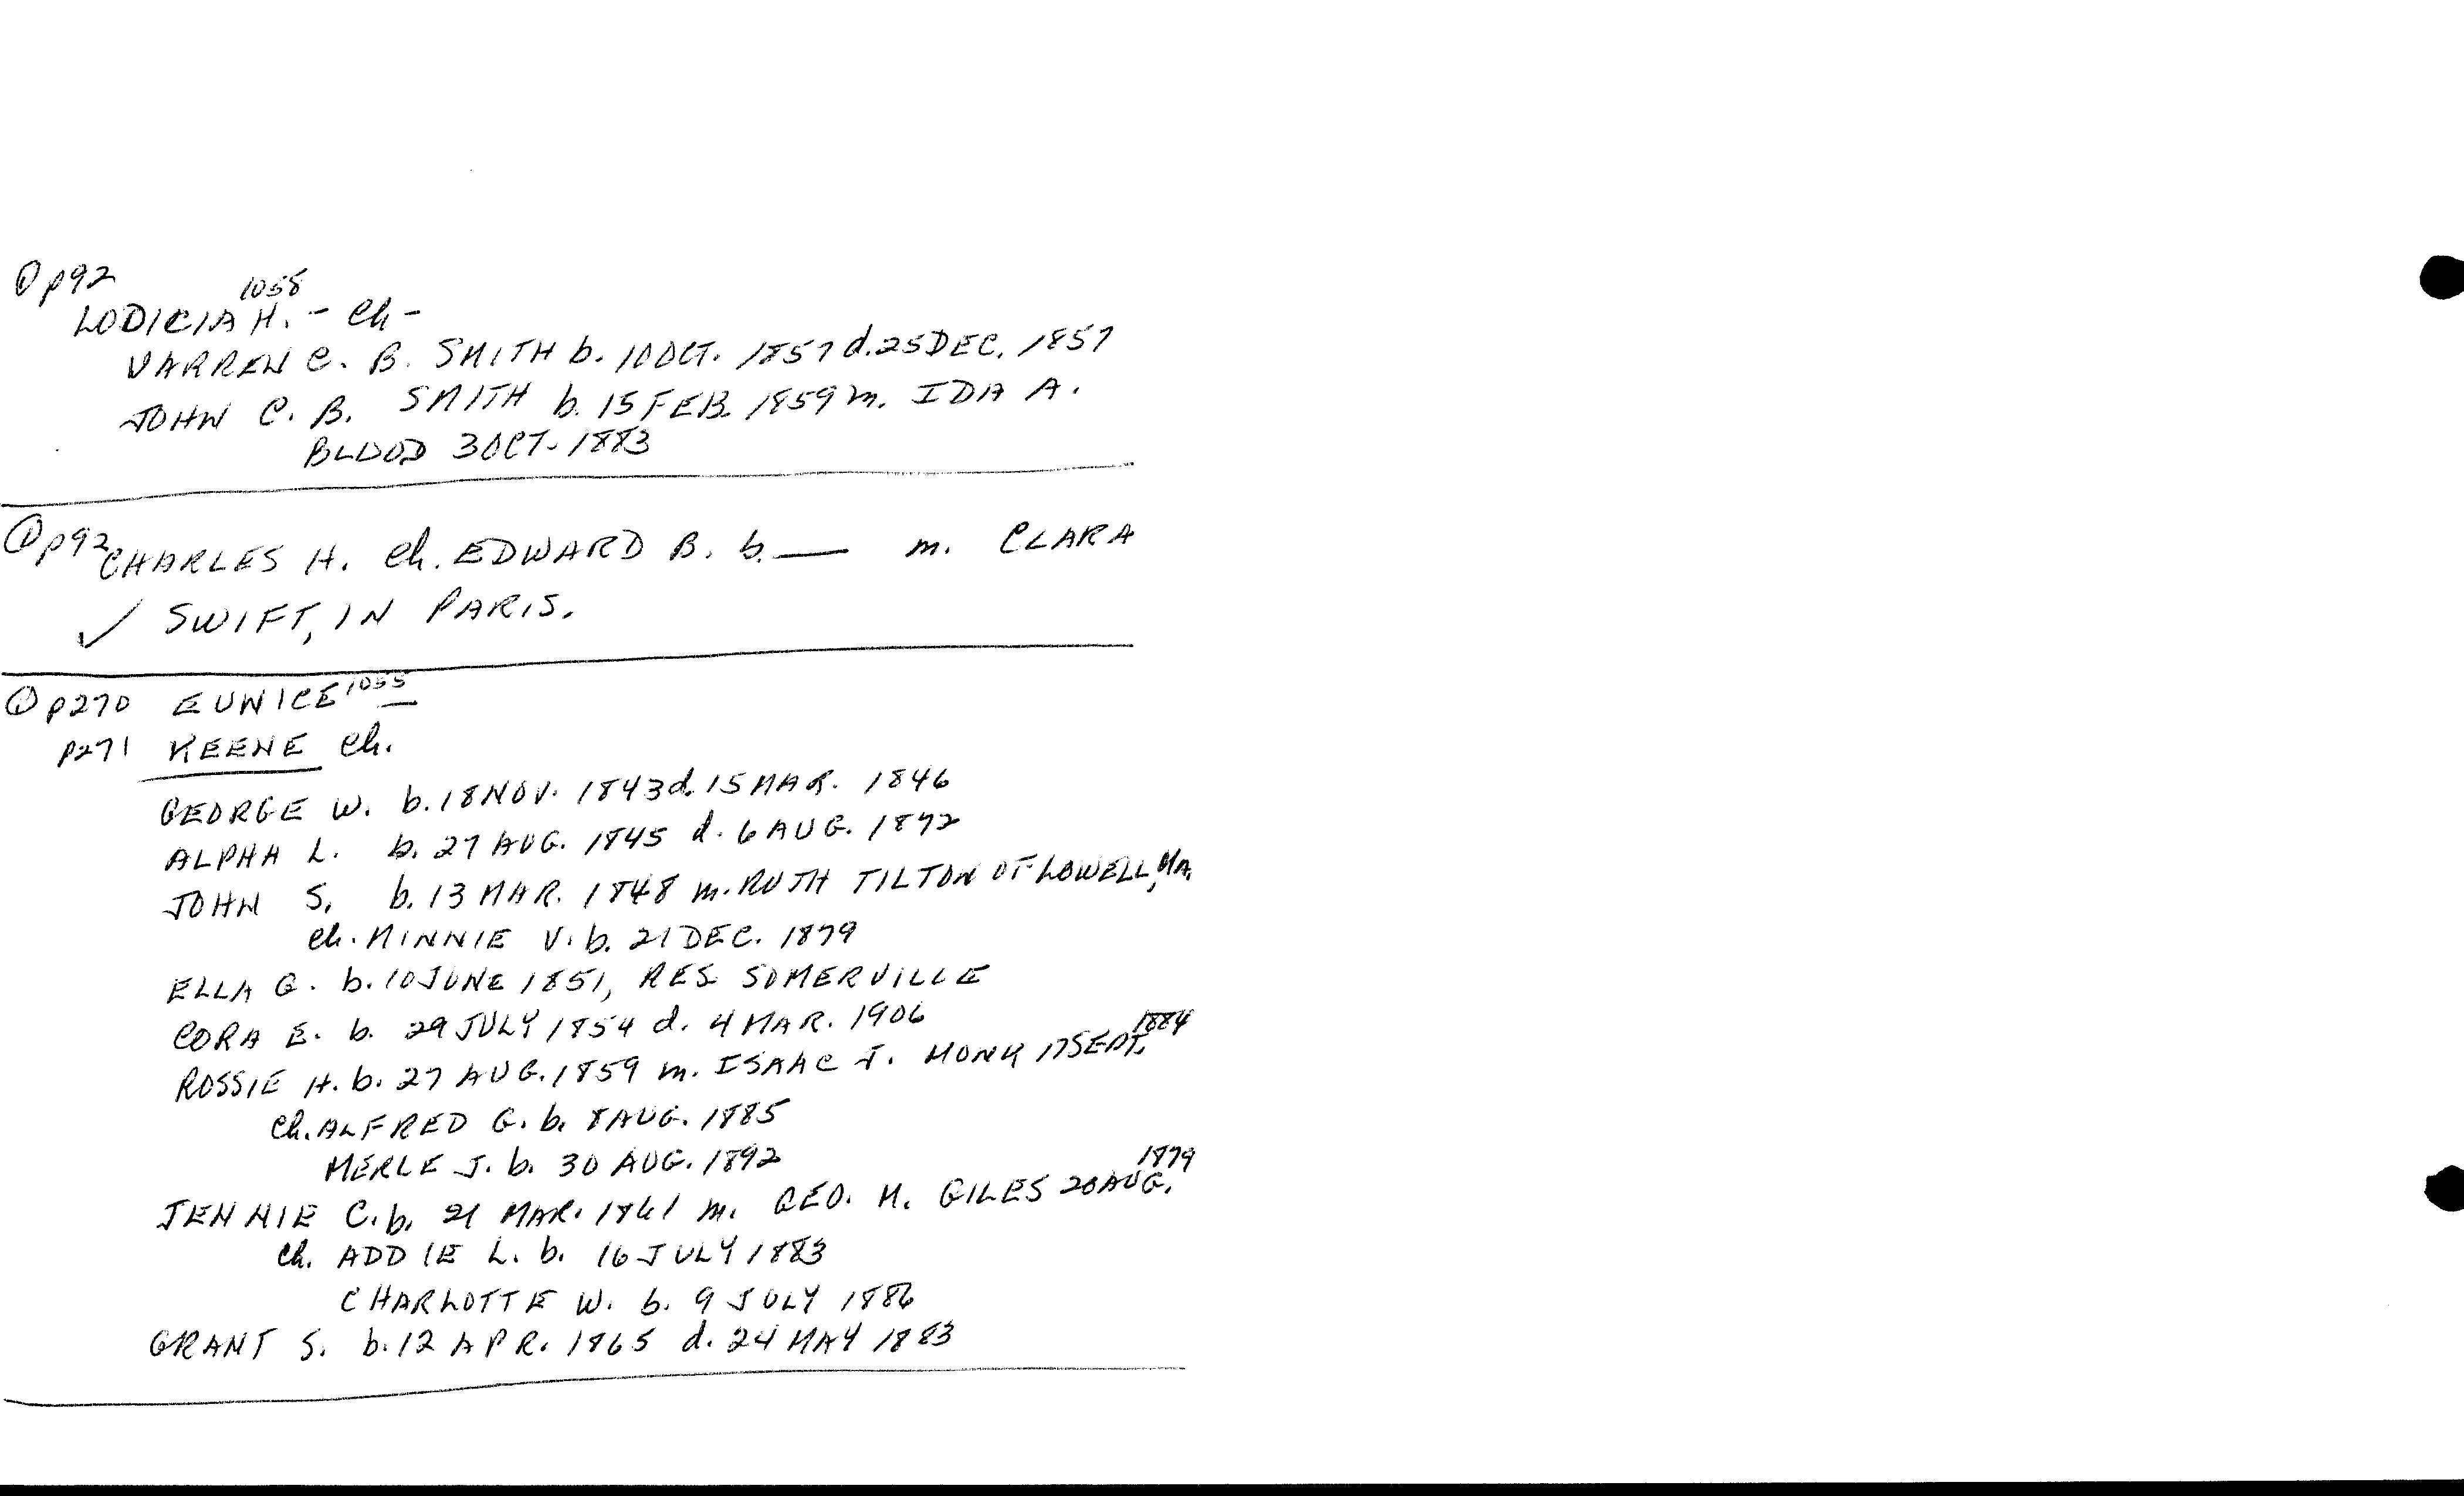 ① p92
1058
LODICIA H. - Ch -
VARREN C. B. SMITH b. 10 OCT. 1857 d. 25 DEC. 1857
JOHN C. B. SMITH b. 15 FEB. 1859 m. IDA A.
BLOOD 3 OCT. 1883
① p92 CHARLES H. Ch. EDWARD B. b. — m. CLARA
✓ SWIFT, IN PARIS.
① p270 EUNICE 1055
p271 KEENE Ch.
GEORGE W. b. 18 NOV. 1843 d. 15 MAR. 1846
ALPHA L. b. 27 AUG. 1845 d. 6 AUG. 1872
JOHN S. b. 13 MAR. 1848 m. RUTH TILTON OF LOWELL, MA.
Ch. MINNIE V. b. 21 DEC. 1879
ELLA G. b. 10 JUNE 1851, RES. SOMERVILLE
CORA E. b. 29 JULY 1854 d. 4 MAR. 1906
ROSSIE H. b. 27 AUG. 1859 m. ISAAC J. MONK 17 SEPT. 1884
Ch. ALFRED G. b. 8 AUG. 1885
MERLE J. b. 30 AUG. 1892
JENNIE C. b. 21 MAR. 1861 m. GEO. M. GILES 20 AUG. 1879
Ch. ADDIE L. b. 16 JULY 1883
CHARLOTTE W. b. 9 JULY 1886
GRANT S. b. 12 APR. 1865 d. 24 MAY 1883